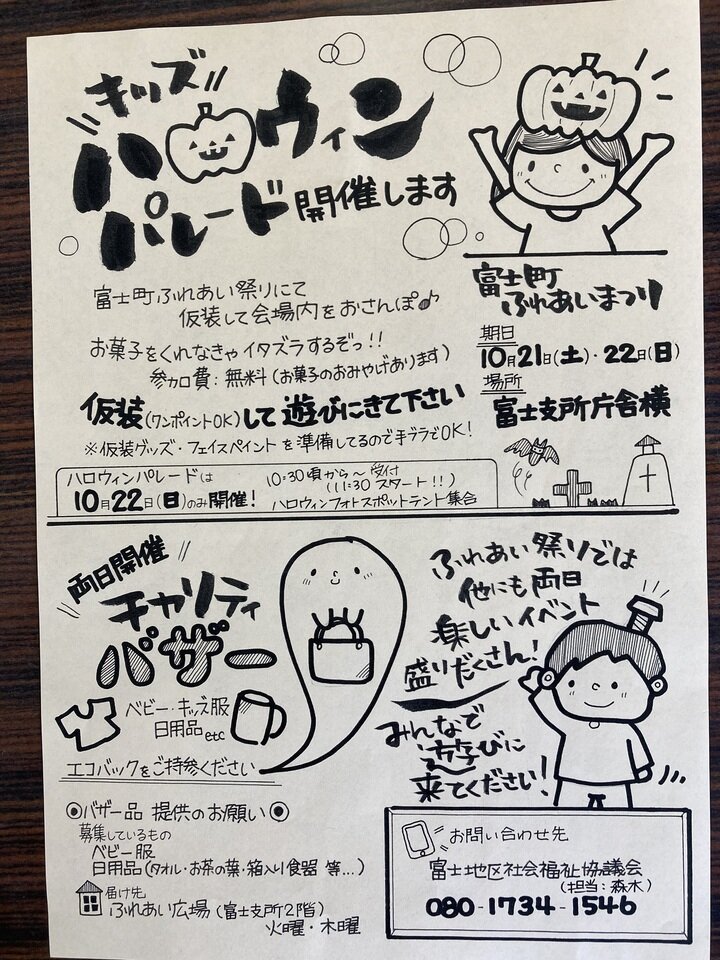 キッズ
ハロウィン
パレード開催します
富士町ふれあい祭りにて
仮装して会場内をおさんぽ♪
お菓子をくれなきゃイタズラするぞっ!!
参加費：無料(お菓子のおみやげあります)
仮装(ワンポイントOK)して遊びにきて下さい
※仮装グッズ・フェイスペイントを準備してるので手ブラでOK!
ハロウィンパレードは
10月22日(日)のみ開催!
10:30頃から～受付
(11:30スタート!!)
ハロウィンフォトスポットテント集合
富士町
ふれあいまつり
期日
10月21日(土)・22日(日)
場所
富士支所庁舎横
両日開催
チャリティ
バザー
ベビー・キッズ服
日用品etc
エコバックをご持参ください
◉バザー品 提供のお願い◉
募集しているもの
ベビー服
日用品(タオル・お茶の葉・箱入り食器 等...)
届け先
ふれあい広場(富士支所2階)
火曜・木曜
ふれあい祭りでは
他にも両日
楽しいイベント
盛りだくさん!
みんなで
遊びに
来てください!
お問い合わせ先
富士地区社会福祉協議会
(担当：森木)
080-1734-1546